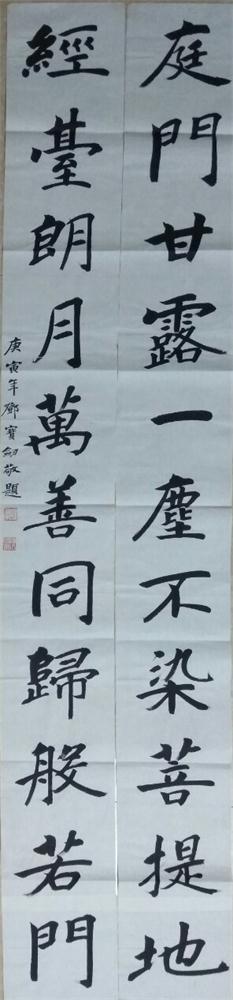 庭門甘露一塵不染菩提地
經臺朗月萬善同歸般若門
庚寅年鄧寶劍敬題